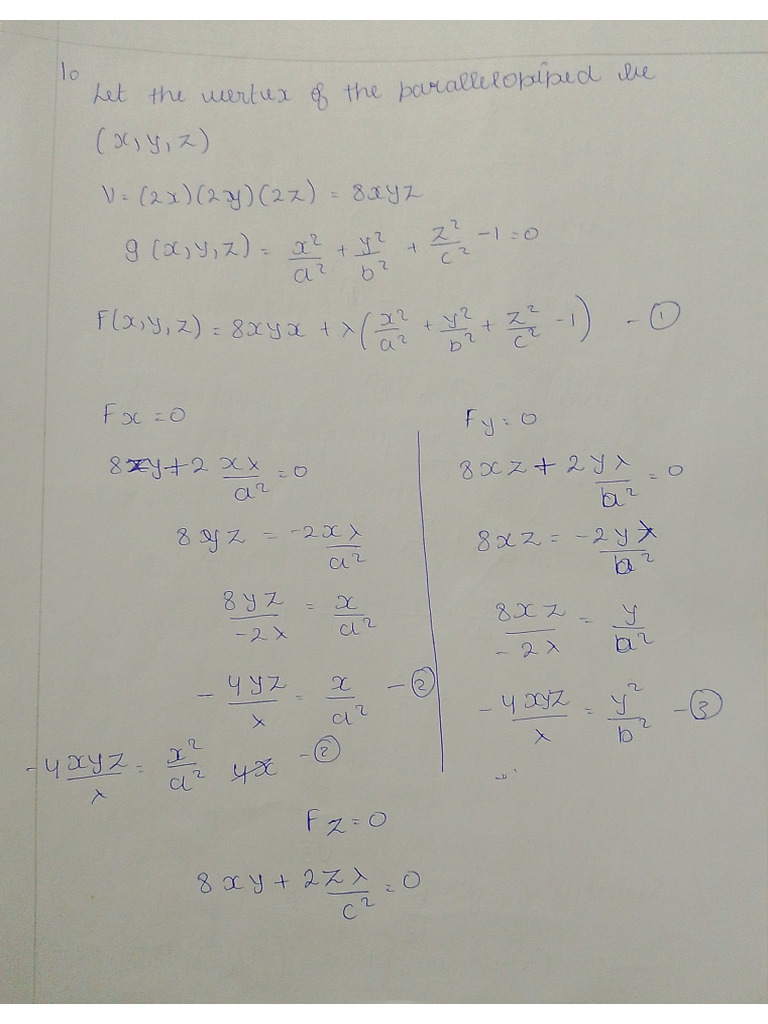 10
Let the vertex of the parallelopiped be
(x, y, z)
V = (2x)(2y)(2z) = 8xyz
g(x, y, z) = x²/a² + y²/b² + z²/c² - 1 = 0
F(x, y, z) = 8xyx + λ(x²/a² + y²/b² + z²/c² - 1) - ①
Fx = 0
8zy + 2xλ/a² = 0
8yz = -2xλ/a²
8yz/-2λ = x/a²
-4yz/λ = x/a² - ②
-4xyz/λ = x²/a² - ②
Fy = 0
8xz + 2yλ/b² = 0
8xz = -2yλ/b²
8xz/-2λ = y/b²
-4xyz/λ = y²/b² - ③
Fz = 0
8xy + 2zλ/c² = 0